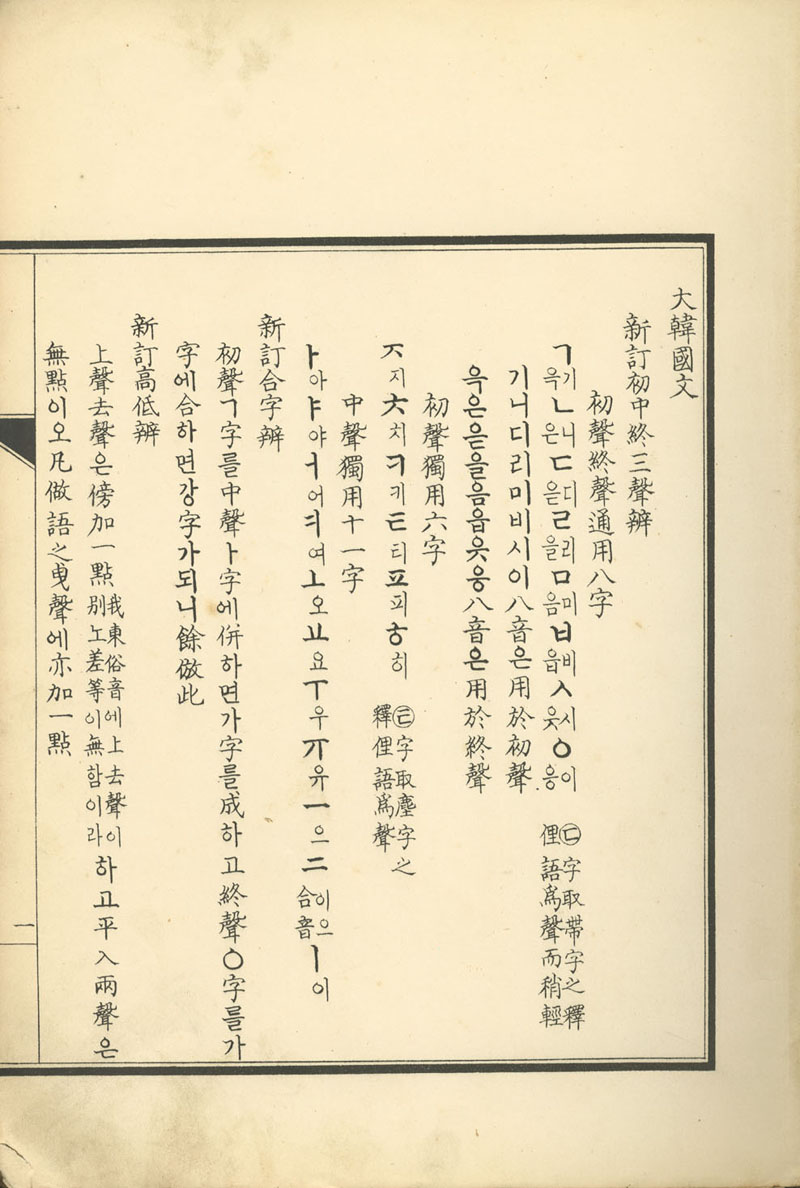 大韓國文
新訂初中終三聲辨
初聲終聲通用八字
ㄱ기윽ㄴ니은ㄷ디읃ㄹ리을ㅁ미음ㅂ비읍ㅅ시읏ㅇ이응 ㄷ字取帶字之釋俚語爲聲而稍輕
기니디리미비시이八音은用於初聲
윽은읃을음읍읏응八音은用於終聲
初聲獨用六字
ㅈ지ㅊ치ㅋ키ㅌ티ㅍ피ㅎ히 ㅌ字取塵字之釋俚語爲聲
中聲獨用十一字
ㅏ아ㅑ야ㅓ어ㅕ여ㅗ오ㅛ요ㅜ우ㅠ유ㅡ으ᆖ이으合音ㅣ이
新訂合字辨
初聲ㄱ字를中聲ㅏ字에併하면가字를成하고終聲ㅇ字를가
字에合하면강字가되니餘倣此
新訂高低辨
上聲去聲은傍加一點我東俗音에上去聲이別노差等이無함이라하고平入兩聲은
無點이오凡做語之曳聲에亦加一點
一